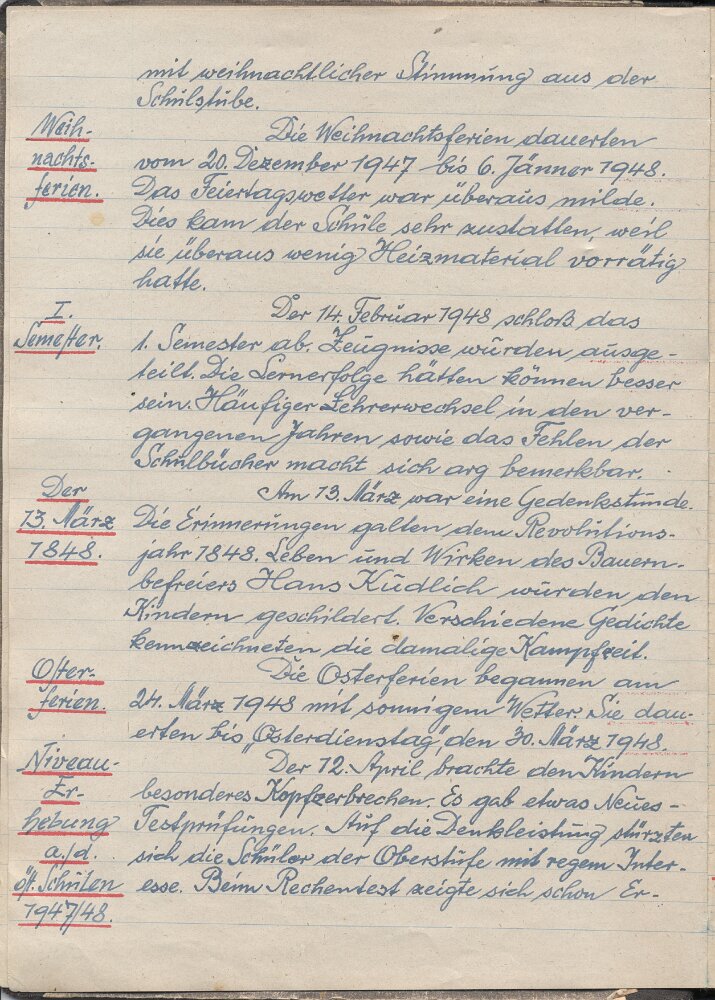 mit weihnachtlicher Stimmung aus der
Schulstube.
Weih-
nachts-
ferien.
Die Weihnachtsferien dauerten
vom 20. Dezember 1947 bis 6. Jänner 1948.
Das Feiertagswetter war überaus milde.
Dies kam der Schule sehr zustatten, weil
sie überaus wenig Heizmaterial vorrätig
hatte.
I.
Semester.
Der 14. Februar 1948 schloß das
1. Semester ab. Zeugnisse wurden ausge-
teilt. Die Lernerfolge hätten können besser
sein. Häufiger Lehrerwechsel in den ver-
gangenen Jahren sowie das Fehlen der
Schulbücher macht sich arg bemerkbar.
Der
13. März
1848.
Am 13. März war eine Gedenkstunde.
Die Erinnerungen galten dem Revolutions-
jahr 1848. Leben und Wirken des Bauern-
befreiers Hans Kudlich wurden den
Kindern geschildert. Verschiedene Gedichte
kennzeichneten die damalige Kampfzeit.
Oster-
ferien.
Die Osterferien begannen am
24. März 1948 mit sonnigem Wetter. Sie dau-
erten bis „Osterdienstag", den 30. März 1948.
Niveau-
Er-
hebung
a./d.
öst. Schulen
1947/48.
Der 12. April brachte den Kindern
besonderes Kopfzerbrechen. Es gab etwas Neues -
Testprüfungen. Auf die Denkleistung stürzten
sich die Schüler der Oberstufe mit regem Inter-
esse. Beim Rechentest zeigte sich schon Er-